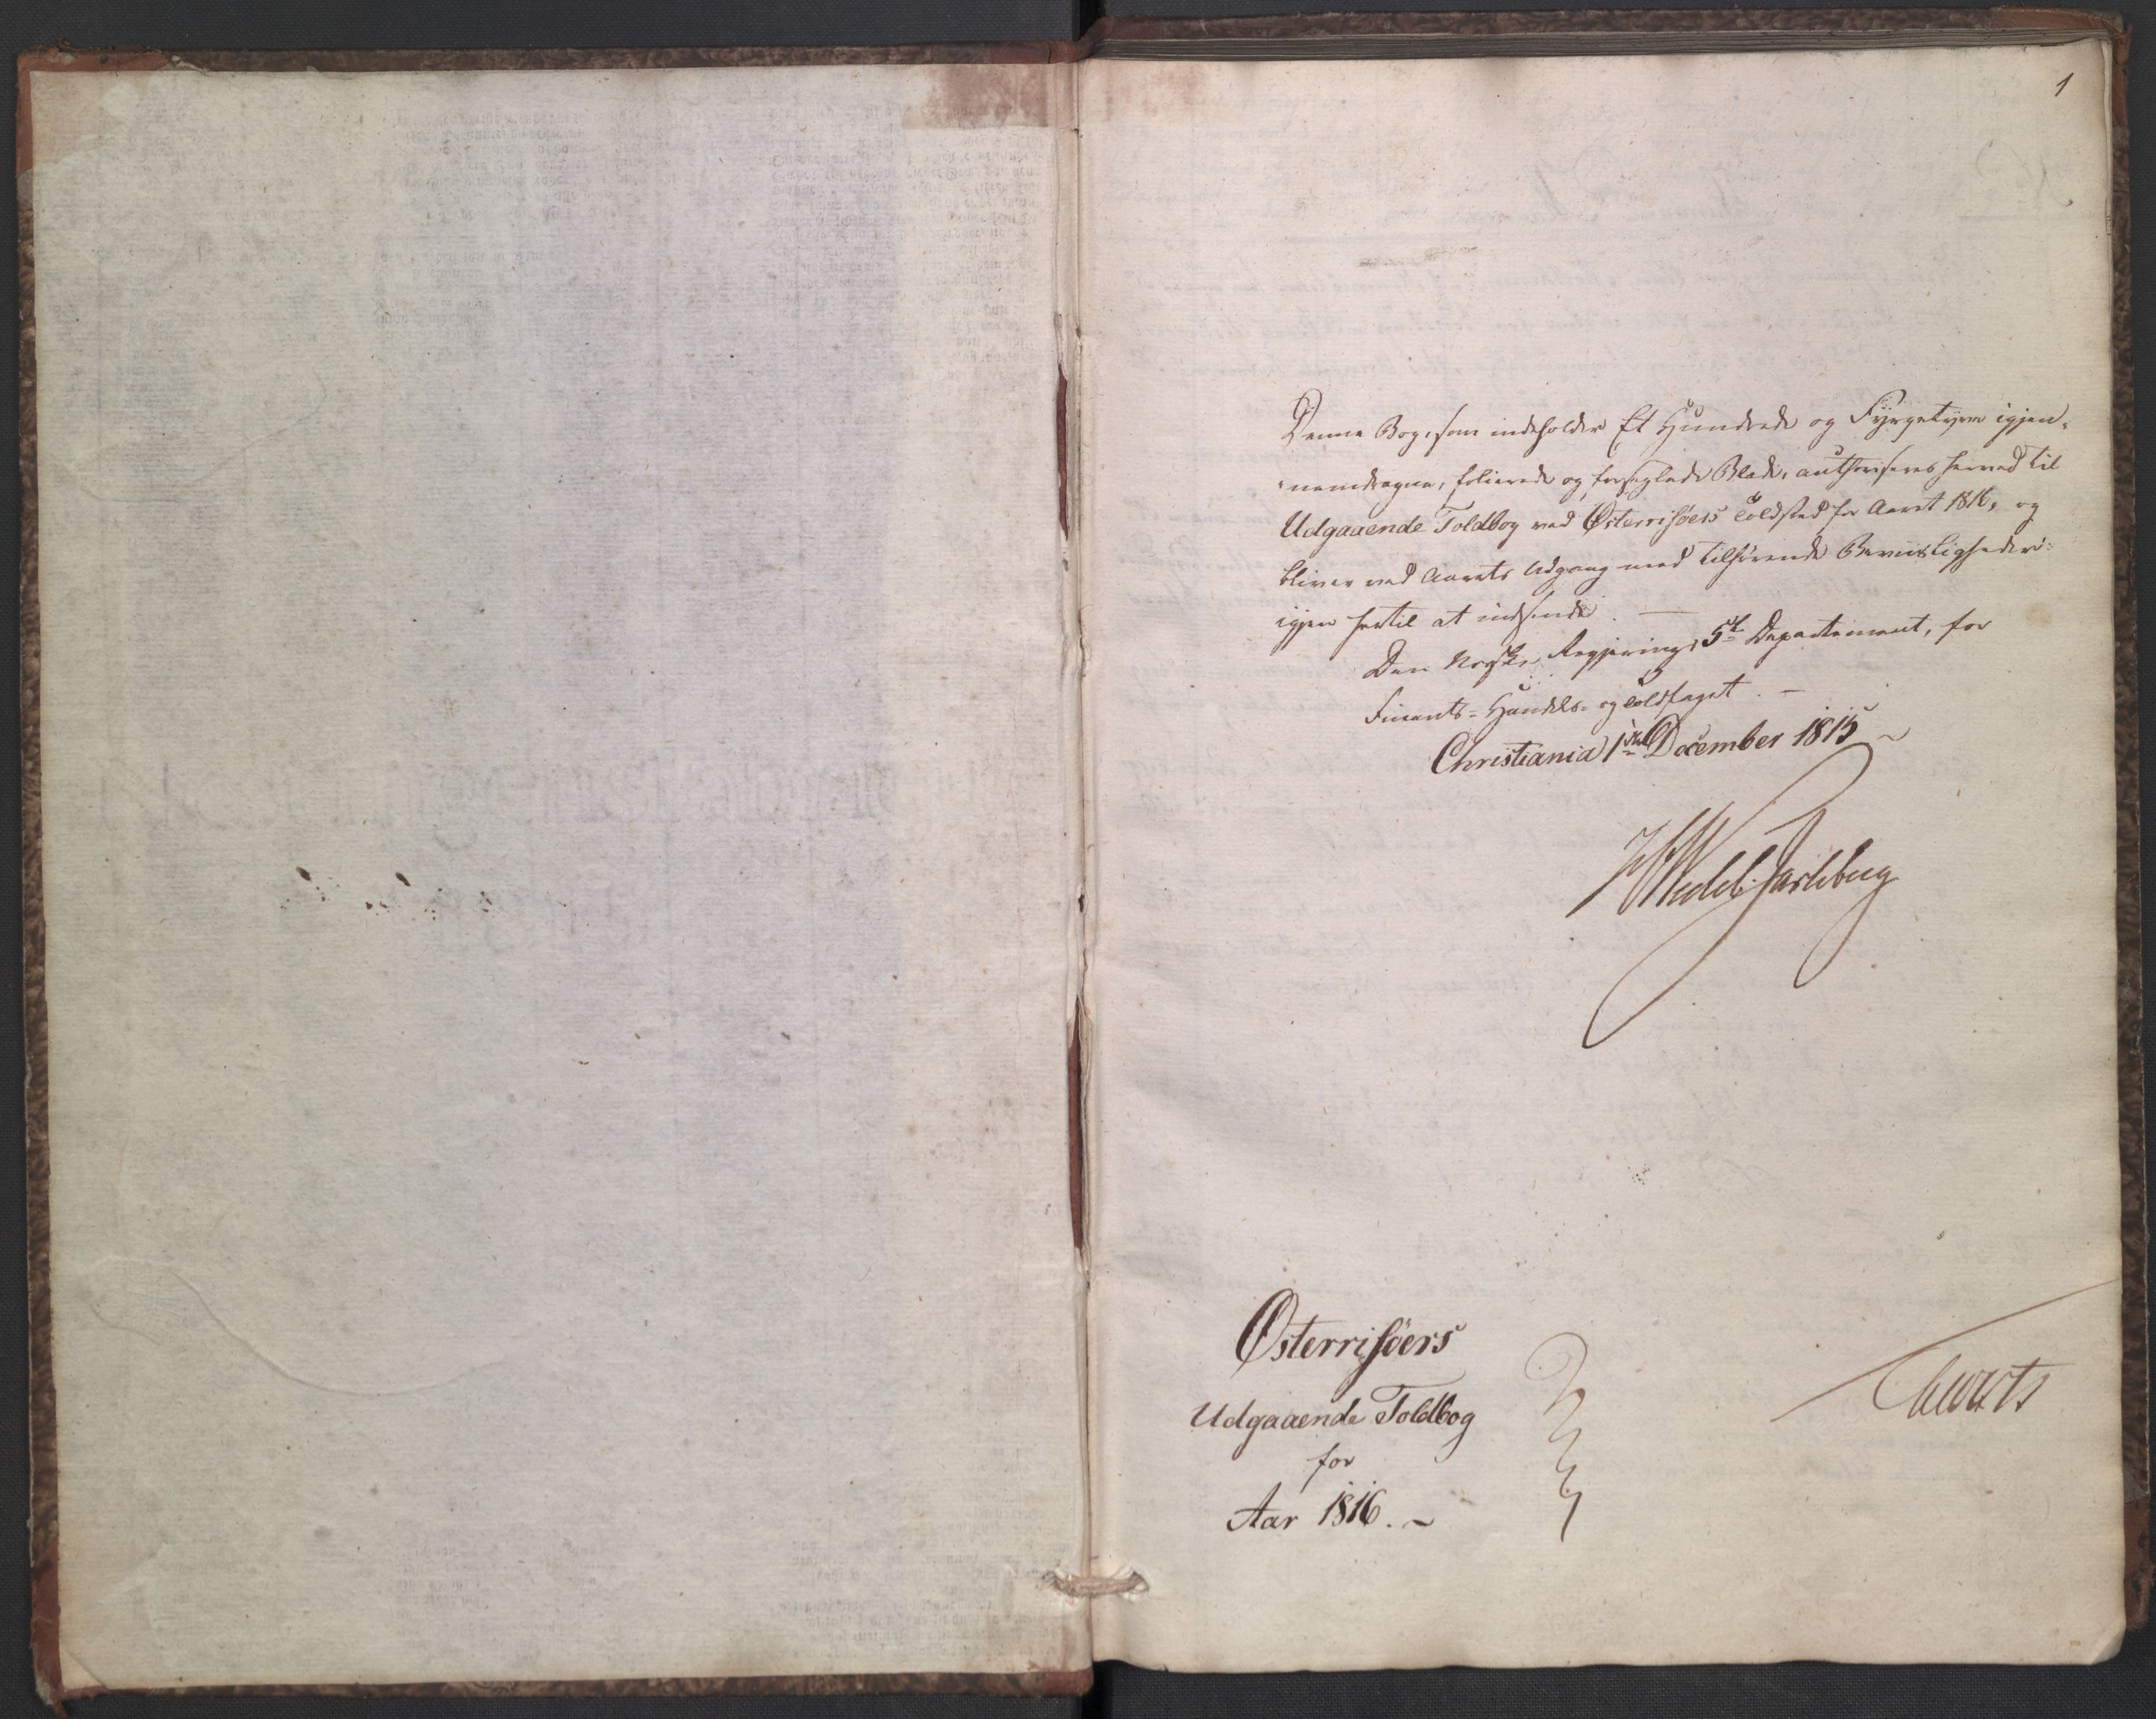 1
Denne Bog, som indeholder Et Hundrede og Fyrgetyve igjen-
nemdragne, folierede og forseglede Blade, authoriseres herved til
Udgaaende Toldbog ved Østerrisöers Toldsted for Aaret 1816, og
bliver ved Aarets Udgang med tilhörende Beviisligheder
igjen hertil at indsende. —
Den Norske Regjerings 5te Departement, for
Finants- Handels- og Toldfaget. —
Christiania 1ste December 1815
HWedel Jarlsberg
Østerrisöers
Udgaaende Toldbog
for
Aar 1816. ~